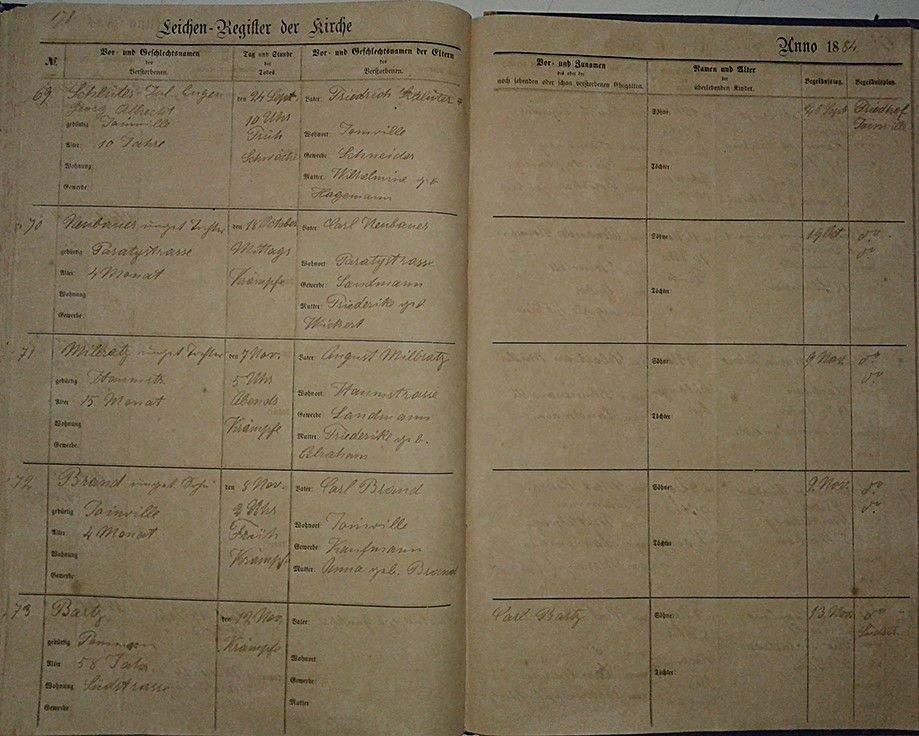 Leichen-Register der Kirche
Anno 1884.
№
Vor- und Geschlechtsnamen
des
Verstorbenen.
Tag und Stunde
des
Todes.
Vor- und Geschlechtsnamen der Eltern
des
Verstorbenen.
Vor- und Zunamen
des oder der
noch lebenden oder schon verstorbenen Ehegatten.
Namen und Alter
der
überlebenden Kinder.
Begräbnißtag.
Begräbnißplatz.
69
Eugen
Georg Albrecht
gebürtig Joinville
Alter 10 Jahre
Wohnung
Gewerbe
den 24 Sept
10 Uhr
Früh
Schwäche
Vater: Friedrich
Wohnort Joinville
Gewerbe: Schneider
Mutter: Wilhelmine geb
Hagemann
Söhne:
Töchter:
25 Sept
Friedhof
Joinville
70
Neubauer unget Tochter
gebürtig Paratystrasse
Alter 4 Monat
Wohnung:
Gewerbe:
den 18 October
Mittags
Krämpfe
Vater: Carl Neubauer
Wohnort Paratystrasse
Gewerbe: Landmann
Mutter: Friederike geb
Wickert
Söhne:
Töchter:
19 Oct
do
do
71
Milbratz unget Tochter
gebürtig
Alter 15 Monat
Wohnung
Gewerbe.
den 7 Nov.
5 Uhr
Abends
Krämpfe
Vater: August Milbratz
Wohnort
Gewerbe Landmann
Mutter Friederike geb.
Abraham
Söhne:
Töchter:
9 Nov.
do
do
72
Brand unget Sohn
gebürtig Joinville
Alter 4 Monat
Wohnung
Gewerbe:
den 8 Nov.
2 Uhr
Früh
Krämpfe
Vater: Carl Brand
Wohnort Joinville
Gewerbe: Kaufmann
Mutter: Anna geb. Brand
Söhne:
Töchter
9. Nov.
do
do
73
Bartz
gebürtig Pommern
Alter 58 Jahr
Wohnung Südstrasse
Gewerbe:
den 12 Nov.
Krämpfe
Vater:
Wohnort:
Gewerbe:
Mutter
Carl Bartz
Söhne:
Töchter:
13. Nov.
do
Südstr.